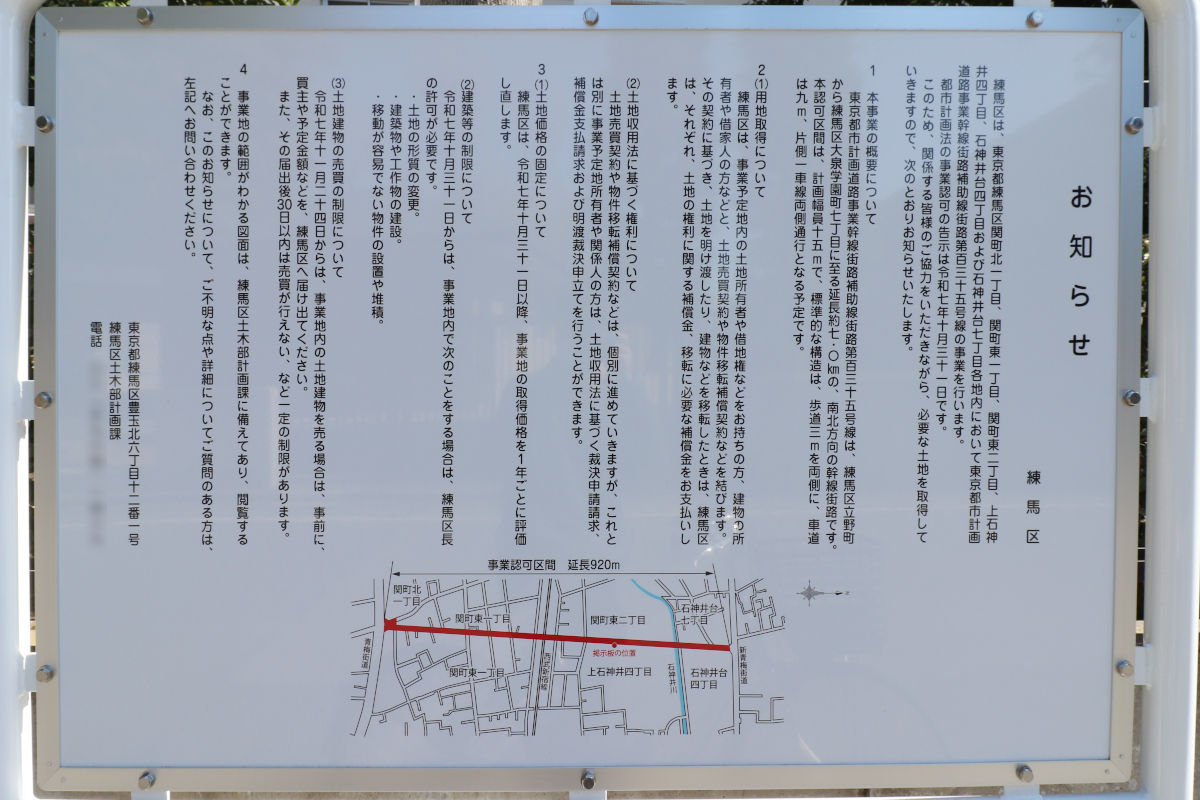 お知らせ
練馬区
練馬区は、東京都練馬区関町北一丁目、関町東一丁目、関町東二丁目、上石神
井四丁目、石神井台四丁目および石神井台七丁目各地内において東京都市計画
道路事業幹線街路補助線街路第百三十五号線の事業を行います。
都市計画法の事業認可の告示は令和七年十月三十一日です。
このため、関係する皆様のご協力をいただきながら、必要な土地を取得して
いきますので、次のとおりお知らせいたします。
1 本事業の概要について
東京都市計画道路事業幹線街路補助線街路第百三十五号線は、練馬区立野町
から練馬区大泉学園町七丁目に至る延長約七・〇kmの、南北方向の幹線街路です。
本認可区間は、計画幅員十五mで、標準的な構造は、歩道三mを両側に、車道
は九m、片側一車線両側通行となる予定です。
2
(1)用地取得について
練馬区は、事業予定地内の土地所有者や借地権などをお持ちの方、建物の所
有者や借家人の方などと、土地売買契約や物件移転補償契約などを結びます。
その契約に基づき、土地を明け渡したり、建物などを移転したときは、練馬区
は、それぞれ、土地の権利に関する補償金、移転に必要な補償金をお支払いし
ます。
(2)土地収用法に基づく権利について
土地売買契約や物件移転補償契約などは、個別に進めていきますが、これと
は別に事業予定地所有者や関係人の方は、土地収用法に基づく裁決申請請求、
補償金支払請求および明渡裁決申立てを行うことができます。
3
(1)土地価格の固定について
練馬区は、令和七年十月三十一日以降、事業地の取得価格を1年ごとに評価
し直します。
(2)建築等の制限について
令和七年十月三十一日からは、事業地内で次のことをする場合は、練馬区長
の許可が必要です。
・土地の形質の変更。
・建築物や工作物の建設。
・移動が容易でない物件の設置や堆積。
(3)土地建物の売買の制限について
令和七年十一月二十四日からは、事業地内の土地建物を売る場合は、事前に、
買主や予定金額などを、練馬区へ届け出てください。
また、その届出後30日以内は売買が行えない、など一定の制限があります。
4 事業地の範囲がわかる図面は、練馬区土木部計画課に備えてあり、閲覧する
ことができます。
なお、このお知らせについて、ご不明な点や詳細についてご質問のある方は、
左記へお問い合わせください。
東京都練馬区豊玉北六丁目十二番一号
練馬区土木部計画課
電話
事業認可区間 延長920m
関町北
一丁目
関町東一丁目
関町東二丁目
石神井台
七丁目
掲示板の位置
関町東一丁目
上石神井四丁目
石神井台
四丁目
青梅街道
西武新宿線
石神井川
新青梅街道